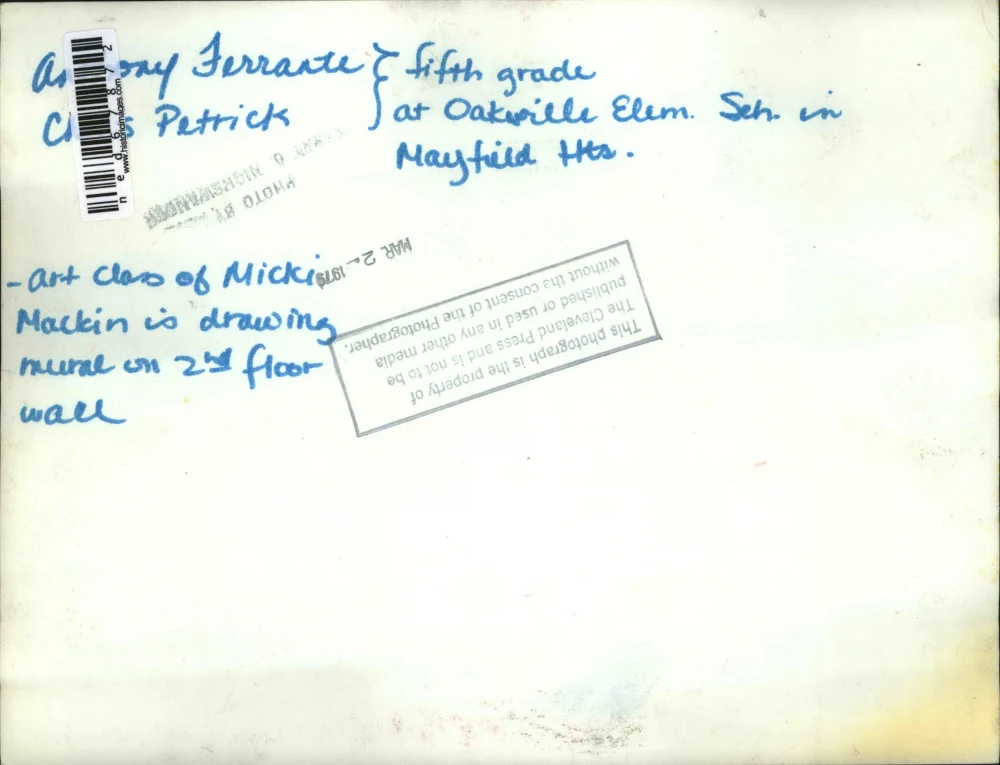 Ferrante } fifth grade
Petrick at Oakville Elem. Sch. in
Mayfield Hts.
ned67872
www.historicimages.com
PHOTO BY
MAR 2 - 1979
- art class of Micki
Mackin is drawing
mural on 2nd floor
wall
This photograph is the property of
The Cleveland Press and is not to be
published or used in any other media
without the consent of the Photographer.